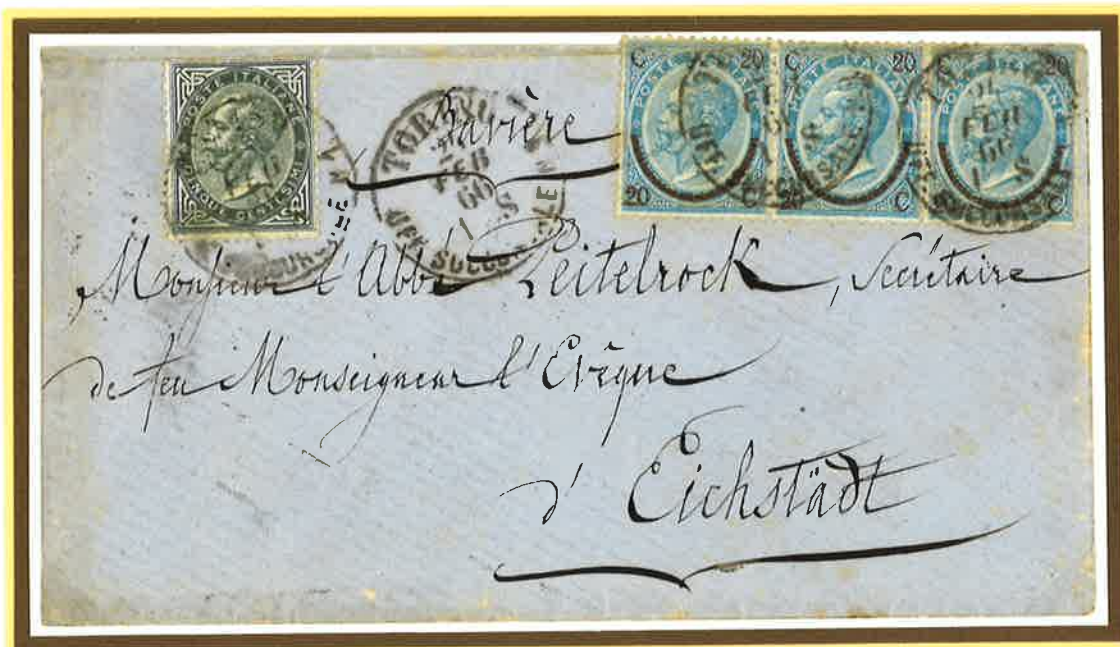 POSTE ITALIANE
CINQUE CENTESIMI
TORINO
FEB
66
1 S
UFF. SUCCURSALE
Bavière
C. 20
POSTE ITALIANE
20 C.
C. 20
POSTE ITALIANE
20 C.
C. 20
POSTE ITALIANE
20 C.
FEB
66
1 S
Monsieur l'Abbé Leitelrock, Secrétaire
de feu Monseigneur l'Evêque
d' Eichstädt